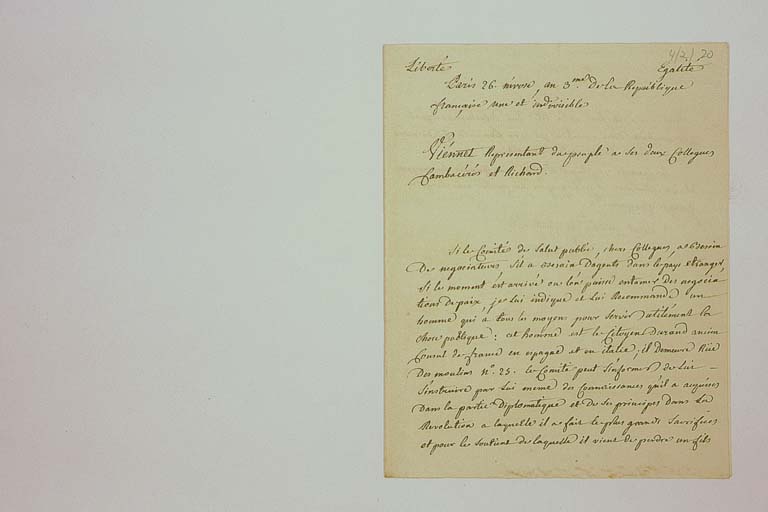 Liberté
Egalité
Paris 26 nivose, an 3.me de la Republique
française une et indivisible
Viennet Representant du peuple a ses deux Collegues
Cambacérès et Richard.
Si le Comité de Salut public, chers Collegues, a besoin
De negociateurs S'il a besoin D'agents dans le pays etranger,
Si le moment est arrivé ou l'on puisse entamer des negocia
tions de paix, je lui indique et lui Recommande un
homme qui a tous les moyens pour servir utilement la
chose publique: cet homme est le citoyen Durand ancien
Consul de france en espagne et en italie; il Demeure Rüe
Des moulins n.o 25. le Comité peut s'informer de lui
S'instruire par lui meme des Connaissances qu'il a acquises
Dans la partie Diplomatique et De ses principes dans la
Revolution a laquelle il a fait les plus grands Sacrifices
et pour le soutient de laquelle il vient de perdre un fils